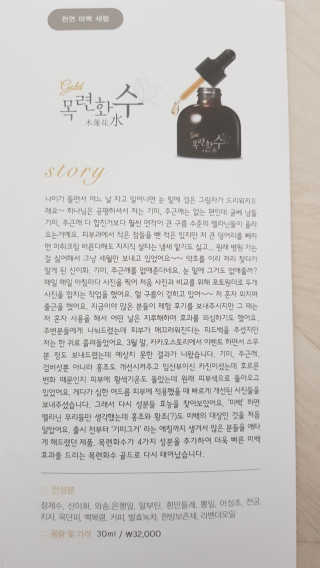 천연 미백 세럼
Gold
목련화수
木蓮花水
story
나이가 들면서 어느 날 자고 일어나면 눈 밑에 검은 그림자가 드리워지드
래요~ 하나님은 공평하셔서 저는 기미, 주근깨는 없는 편인데 글쎄 남들
기미, 주근깨 다 합친거보다 훨씬 면적이 큰 구릿 수준의 멜라닌들이 올라
오는거예요. 피부과에서 작은 점들을 뺀 적은 있지만 저 큰 덩어리를 빼자
면 마취크림 바른다해도 지지직 살타는 냄새 맡기도 싫고... 원래 병원 가는
걸 싫어해서 그냥 세월만 보내고 있었어요~~ 약초를 이리 저리 찾다가
알게 된 신이화. 기미, 주근깨를 없애준다네요. 눈 밑에 그거도 없애줄까?
매일 매일 아침마다 사진을 찍어 처음 사진과 비교를 위해 포토원더로 두개
사진을 합치는 작업을 했어요. 헐 구름이 걷히고 있어~~ 저 혼자 외치며
출근을 했었어요. 지금이야 많은 분들이 체험 후기를 보내주시지만 그 때는
저 혼자 사용을 해서 어떤 날은 지루해하며 효과를 의심하기도 했어요.
주변분들에게 나눠드렸는데 피부가 매끄러워진다는 피드백을 주셨지만
저는 한 귀로 흘려들었어요. 3월 말, 카카오스토리에서 이벤트 하면서 스무
분 정도 보내드렸는데 예상치 못한 결과가 나왔습니다. 기미, 주근깨,
검버섯뿐 아니라 홍조도 개선시켜주고 임신부이신 카친이셨는데 호르몬
변화 때문인지 피부에 황색기운도 돌았는데 원래 피부색으로 돌아오고
있었어요. 게다가 심한 여드름 피부에 적용했을 때 빠르게 개선된 사진들을
보내주셨습니다. 그래서 다시 성분들 효능을 찾아보았어요. '미백' 하면
멜라닌 우리들만 생각했는데 홍조와 황조(?)도 미백의 대상인 것을 처음
알았어요. 출시 전부터 '기미그거' 라는 애칭까지 생겨서 많은 분들을 애타
게 해드렸던 제품. 목련화수가 4가지 성분을 추가하여 더욱 빠른 미백
효과를 드리는 목련화수 골드로 다시 태어났습니다.
전성분
정제수, 신이화, 와송, 은행잎, 알부틴, 흰민들레, 뽕잎, 어성초, 천궁,
치자, 목단피, 백복령, 커피, 발효녹차, 한방보존제, 라벤더오일
용량 및 가격 30ml / ₩32,000